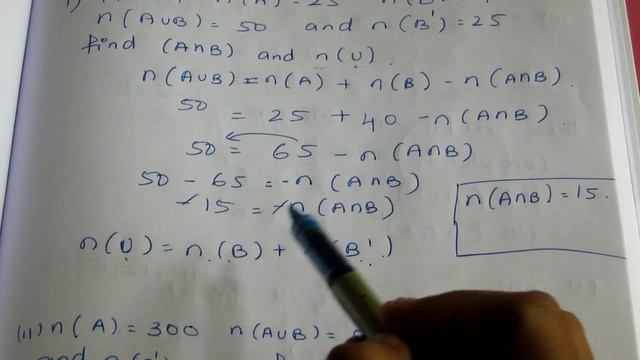 1) n(A) = 25 n(B
n(A∪B) = 50 and n(B') = 25
find (A∩B) and n(U).
n(A∪B) = n(A) + n(B) - n(A∩B).
50 = 25 + 40 - n(A∩B)
50 = 65 - n(A∩B)
50 - 65 = -n(A∩B)
-15 = -n(A∩B)
n(A∩B) = 15.
n(U) = n(B) + (B')
(ii) n(A) = 300 n(A∪B) =
and